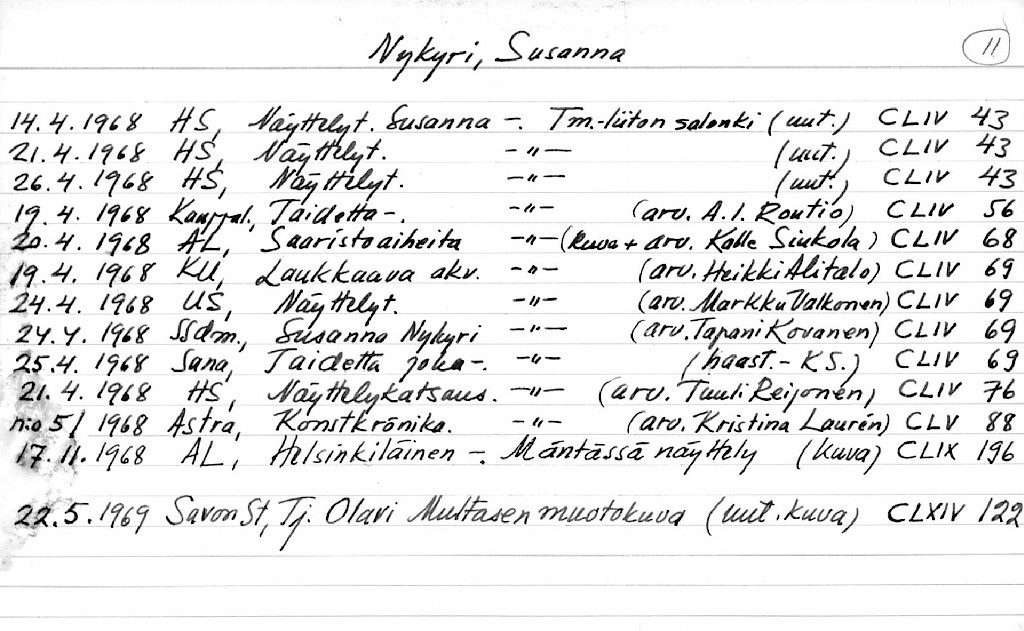 Nykyri, Susanna 11
14.4.1968 HS, Näyttelyt. Susanna -. Tm.-liiton salonki (uut.) CLIV 43
21.4.1968 HS, Näyttelyt. -"- (uut.) CLIV 43
26.4.1968 HS, Näyttelyt. -"- (uut.) CLIV 43
19.4.1968 Kauppal., Taidetta-. -"- (arv. A.I. Routio) CLIV 56
20.4.1968 AL, Saaristoaiheita -"- (kuva + arv. Kalle Siukola) CLIV 68
19.4.1968 KU, Laukkaava akv. -"- (arv. Heikki Alitalo) CLIV 69
24.4.1968 US, Näyttelyt. -"- (arv. Markku Valkonen) CLIV 69
24.4.1968 Ssdm., Susanna Nykyri -"- (arv. Tapani Kovanen) CLIV 69
25.4.1968 Sana, Taidetta joka-. -"- (haast.- K.S.) CLIV 69
21.4.1968 HS, Näyttelykatsaus. -"- (arv. Tuuli Reijonen) CLIV 76
n:o 5/1968 Astra, Konstkrönika. -"- (arv. Kristina Laurén) CLV 88
17.11.1968 AL, Helsinkiläinen -. Mäntässä näyttely (kuva) CLIX 196
22.5.1969 Savon St, Tj. Olavi Multasen muotokuva (uut. kuva) CLXIV 122